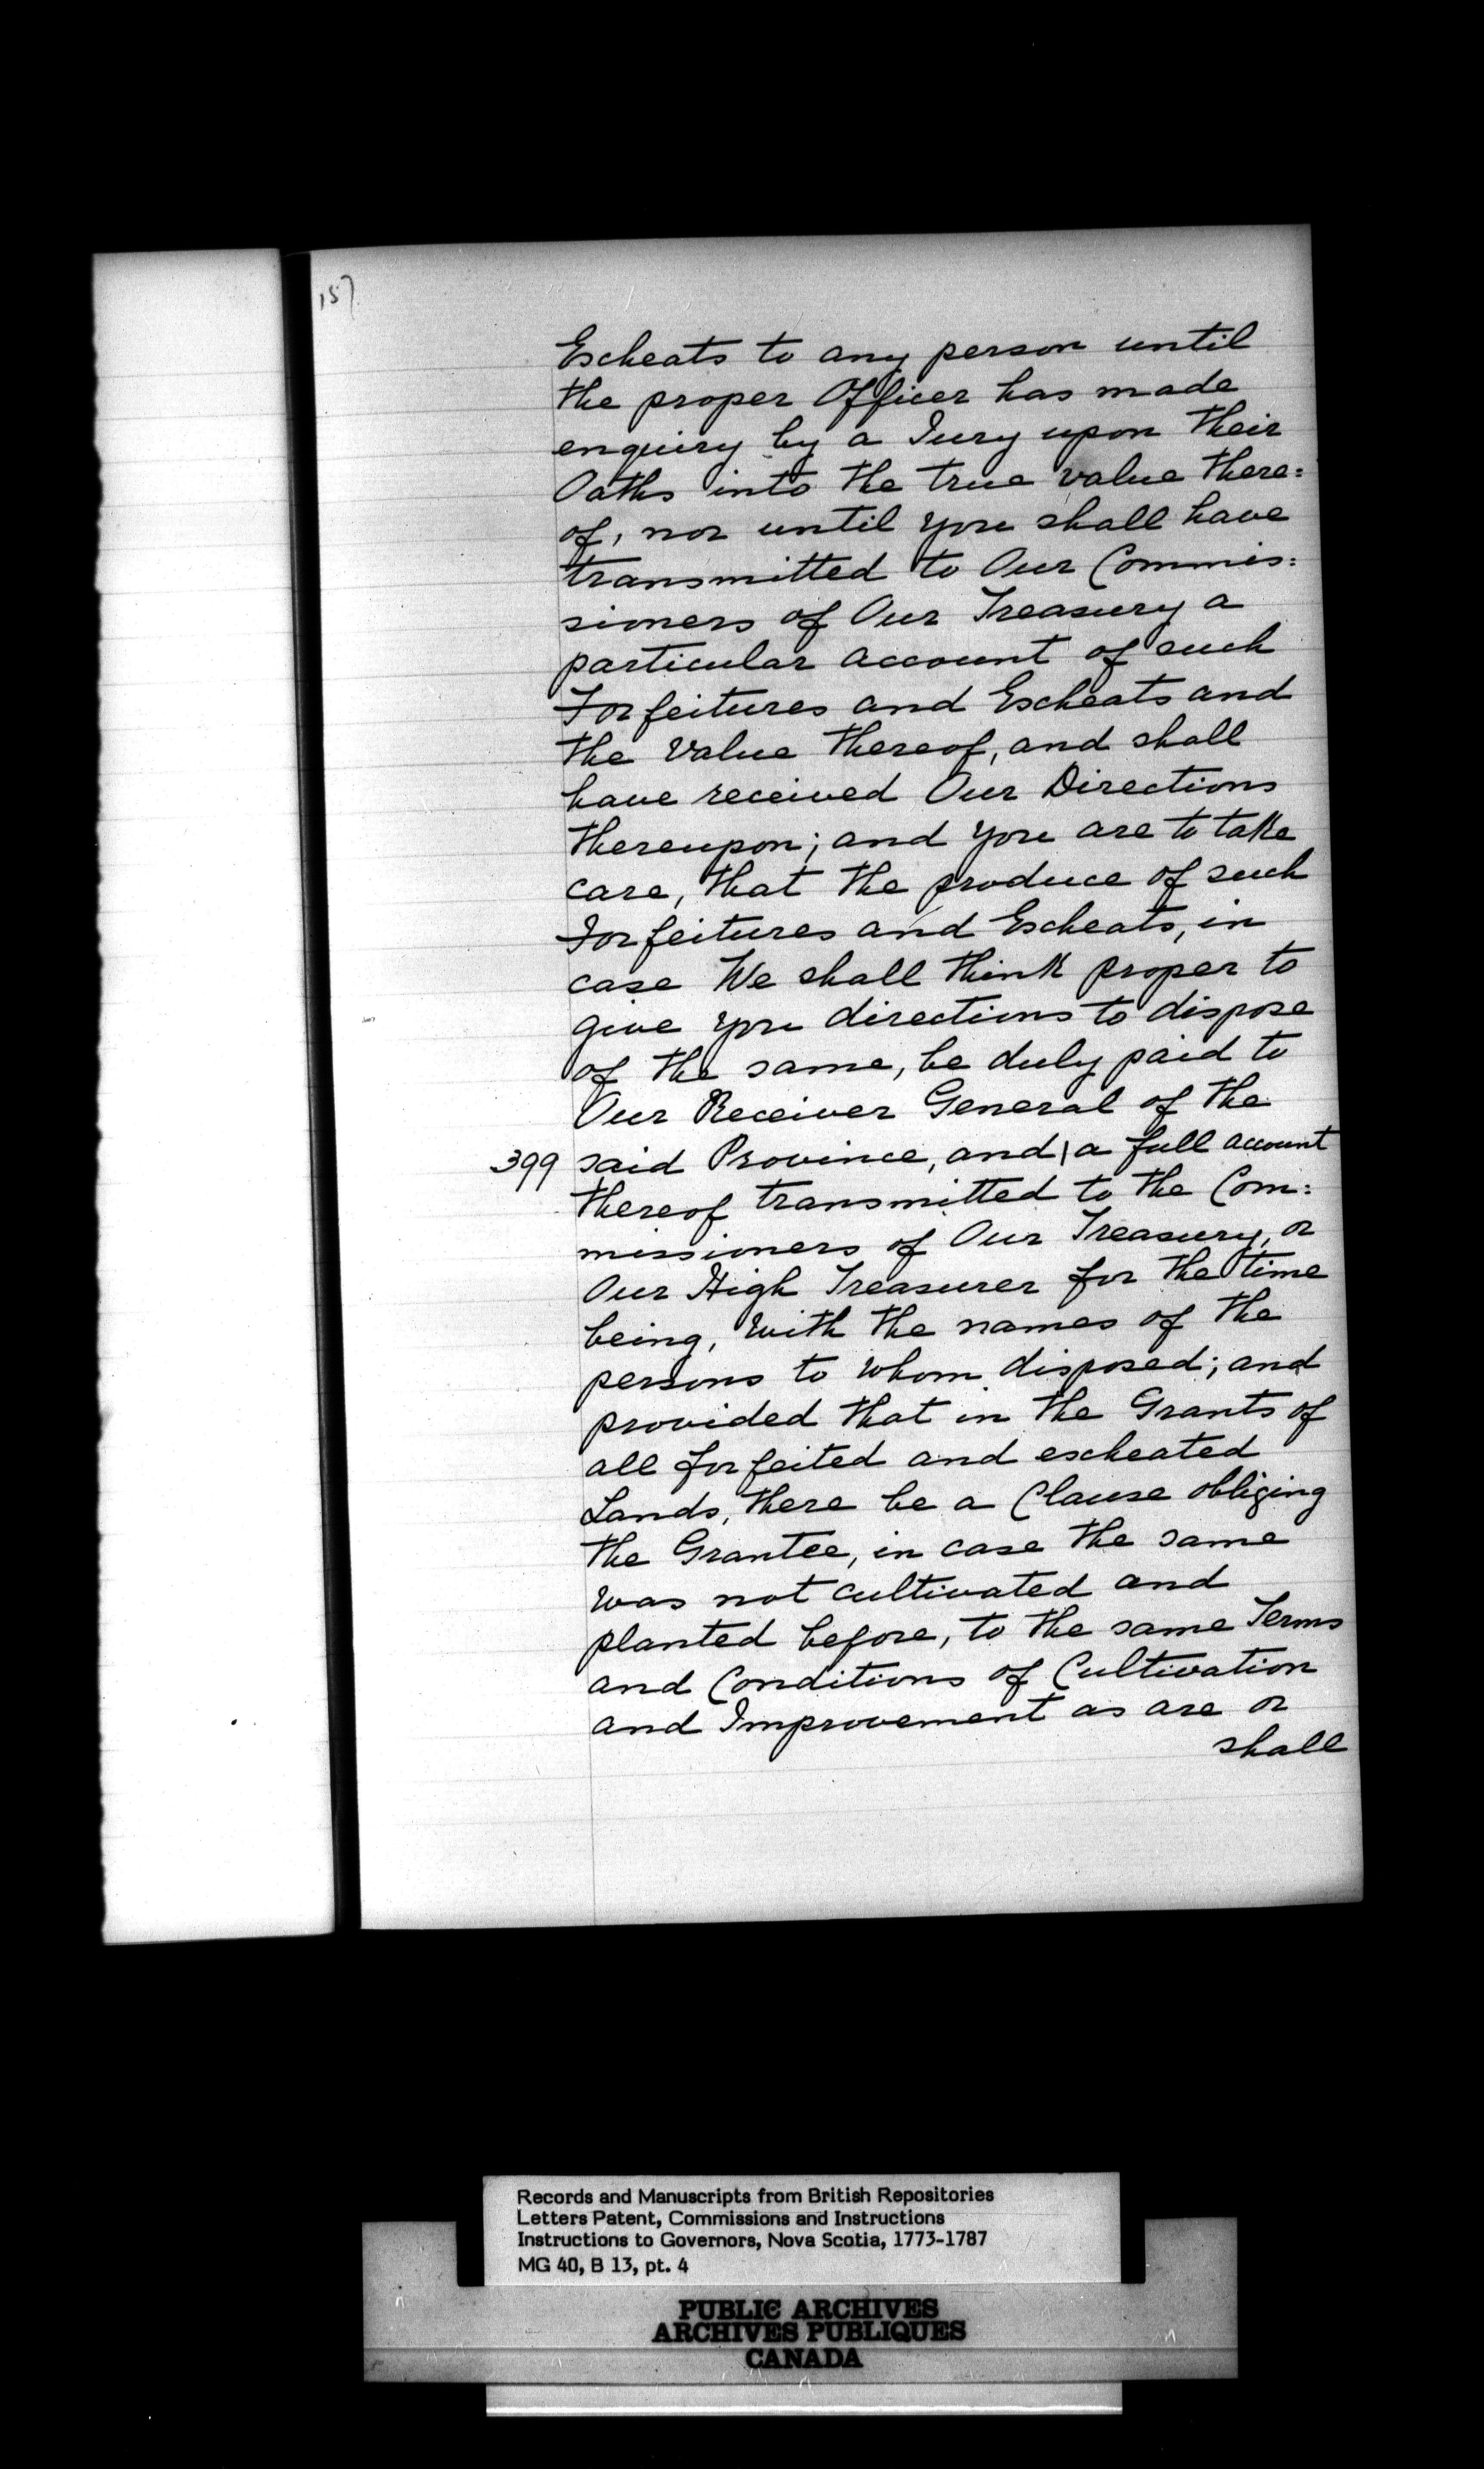 157
Escheats to any person until
the proper Officer has made
enquiry by a Jury upon their
Oaths into the true value there=
of, nor until you shall have
transmitted to Our Commis=
sioners of Our Treasury a
particular account of such
Forfeitures and Escheats and
the Value thereof, and shall
have received Our Directions
thereupon; and you are to take
care, that the produce of such
Forfeitures and Escheats, in
case We shall think proper to
give you directions to dispose
of the same, be duly paid to
Our Receiver General of the
399 said Province, and | a full account
thereof transmitted to the Com=
missioners of Our Treasury, or
Our High Treasurer for the time
being, with the names of the
persons to whom disposed; and
provided that in the Grants of
all forfeited and escheated
Lands, there be a Clause obliging
the Grantee, in case the same
was not cultivated and
planted before, to the same Terms
and Conditions of Cultivation
and Improvement as are or
shall
Records and Manuscripts from British Repositories
Letters Patent, Commissions and Instructions
Instructions to Governors, Nova Scotia, 1773-1787
MG 40, B 13, pt. 4
PUBLIC ARCHIVES
ARCHIVES PUBLIQUES
CANADA